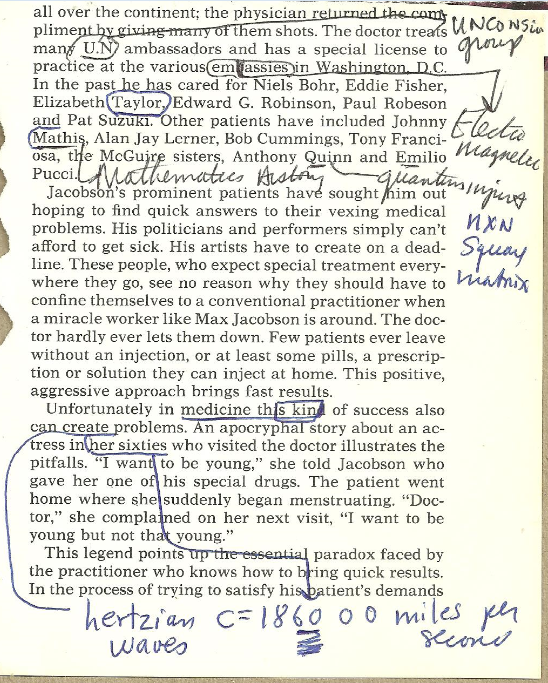 all over the continent; the physician returned the com-
pliment by giving many of them shots. The doctor treats
many U.N. ambassadors and has a special license to
practice at the various embassies in Washington, D.C.
In the past he has cared for Niels Bohr, Eddie Fisher,
Elizabeth Taylor, Edward G. Robinson, Paul Robeson
and Pat Suzuki. Other patients have included Johnny
Mathis, Alan Jay Lerner, Bob Cummings, Tony Franci-
osa, the McGuire sisters, Anthony Quinn and Emilio
Pucci.
Mathematics History
group
Electro
Magnetic
quantum
NXN
Square
Matrix
Jacobson's prominent patients have sought him out
hoping to find quick answers to their vexing medical
problems. His politicians and performers simply can't
afford to get sick. His artists have to create on a dead-
line. These people, who expect special treatment every-
where they go, see no reason why they should have to
confine themselves to a conventional practitioner when
a miracle worker like Max Jacobson is around. The doc-
tor hardly ever lets them down. Few patients ever leave
without an injection, or at least some pills, a prescrip-
tion or solution they can inject at home. This positive,
aggressive approach brings fast results.
Unfortunately in medicine this kind of success also
can create problems. An apocryphal story about an ac-
tress in her sixties who visited the doctor illustrates the
pitfalls. "I want to be young," she told Jacobson who
gave her one of his special drugs. The patient went
home where she suddenly began menstruating. "Doc-
tor," she complained on her next visit, "I want to be
young but not that young."
This legend points up the essential paradox faced by
the practitioner who knows how to bring quick results.
In the process of trying to satisfy his patient's demands
hertzian C=186000 miles per
waves second